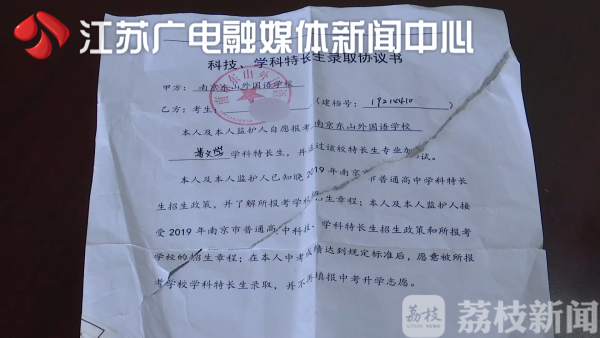 江苏广电融媒体新闻中心
科技、学科特长生录取协议书
甲方：南京东山外国语学校
乙方：考生： （建档号：192110610）
本人及本人监护人自愿报考南京东山外国语学校
学科特长生，并 过该校特长生专业加 试。
本人及本人监护人已知晓2019年南京市普通高中学科特长
生招生政策，并了解所报考学校 生章程；本人及本人监护人接
受2019年南京市普通高中科技、学科特长生招生政策和所报考
学校的招生章程；在本人中考成绩达到规定标准后，愿意被所报
考学校学科特长生录取，并不再填报中考升学志愿。
荔枝
荔枝新闻